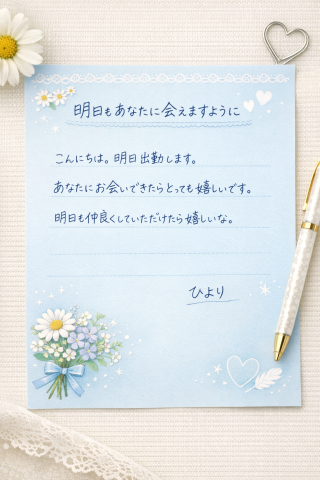 明日もあなたに会えますように
こんにちは。明日出勤します。
あなたにお会いできたらとっても嬉しいです。
明日も仲良くしていただけたら嬉しいな。
ひより